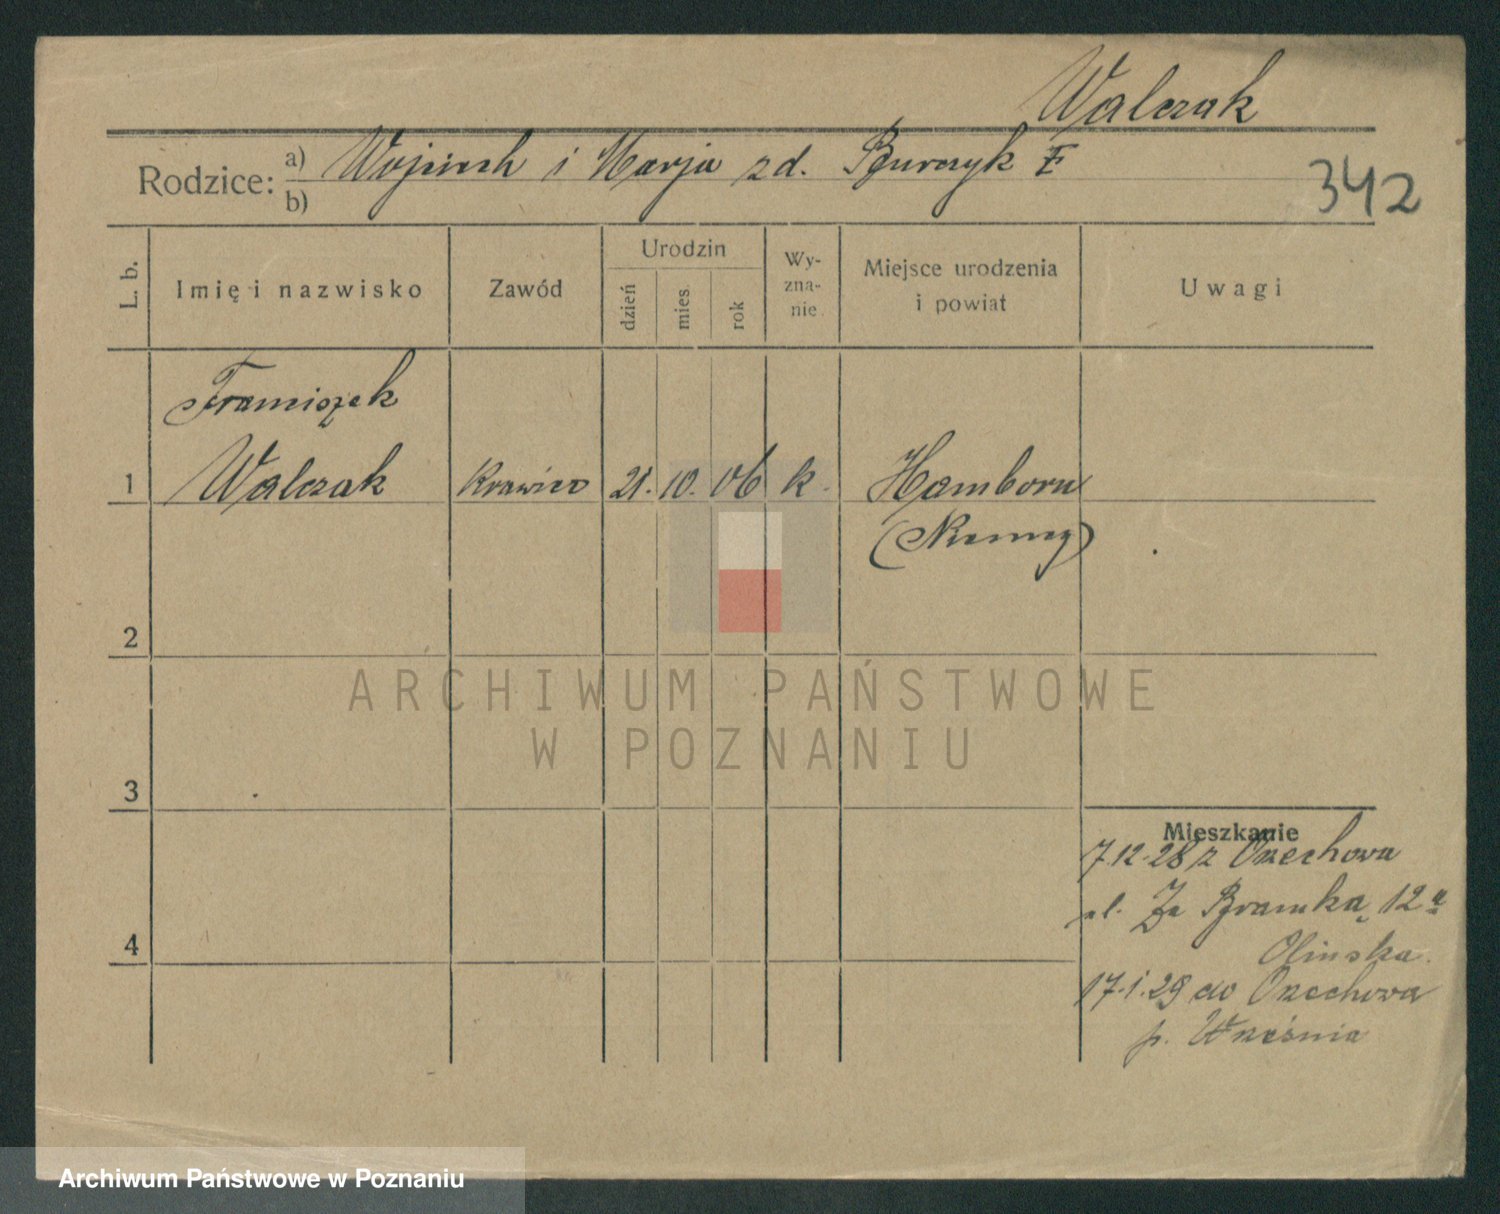 Walczak
Rodzice: a) Wojciech i Marja zd. Burczyk
b)
342
L. b.
Imię i nazwisko
Zawód
Urodzin
dzień
mies.
rok
Wy-
zna-
nie
Miejsce urodzenia
i powiat
Uwagi
Franciszek
1 Walczak Krawiec 21. 10. 06 k. Hamborn
(Niemcy)
2
ARCHIWUM PAŃSTWOWE
W POZNANIU
3
Mieszkanie
7.12.28 z Orzechowa
ul. Za Bramką 12a
Olinska.
4
17.1.29 do Orzechowa
p. Września
Archiwum Państwowe w Poznaniu